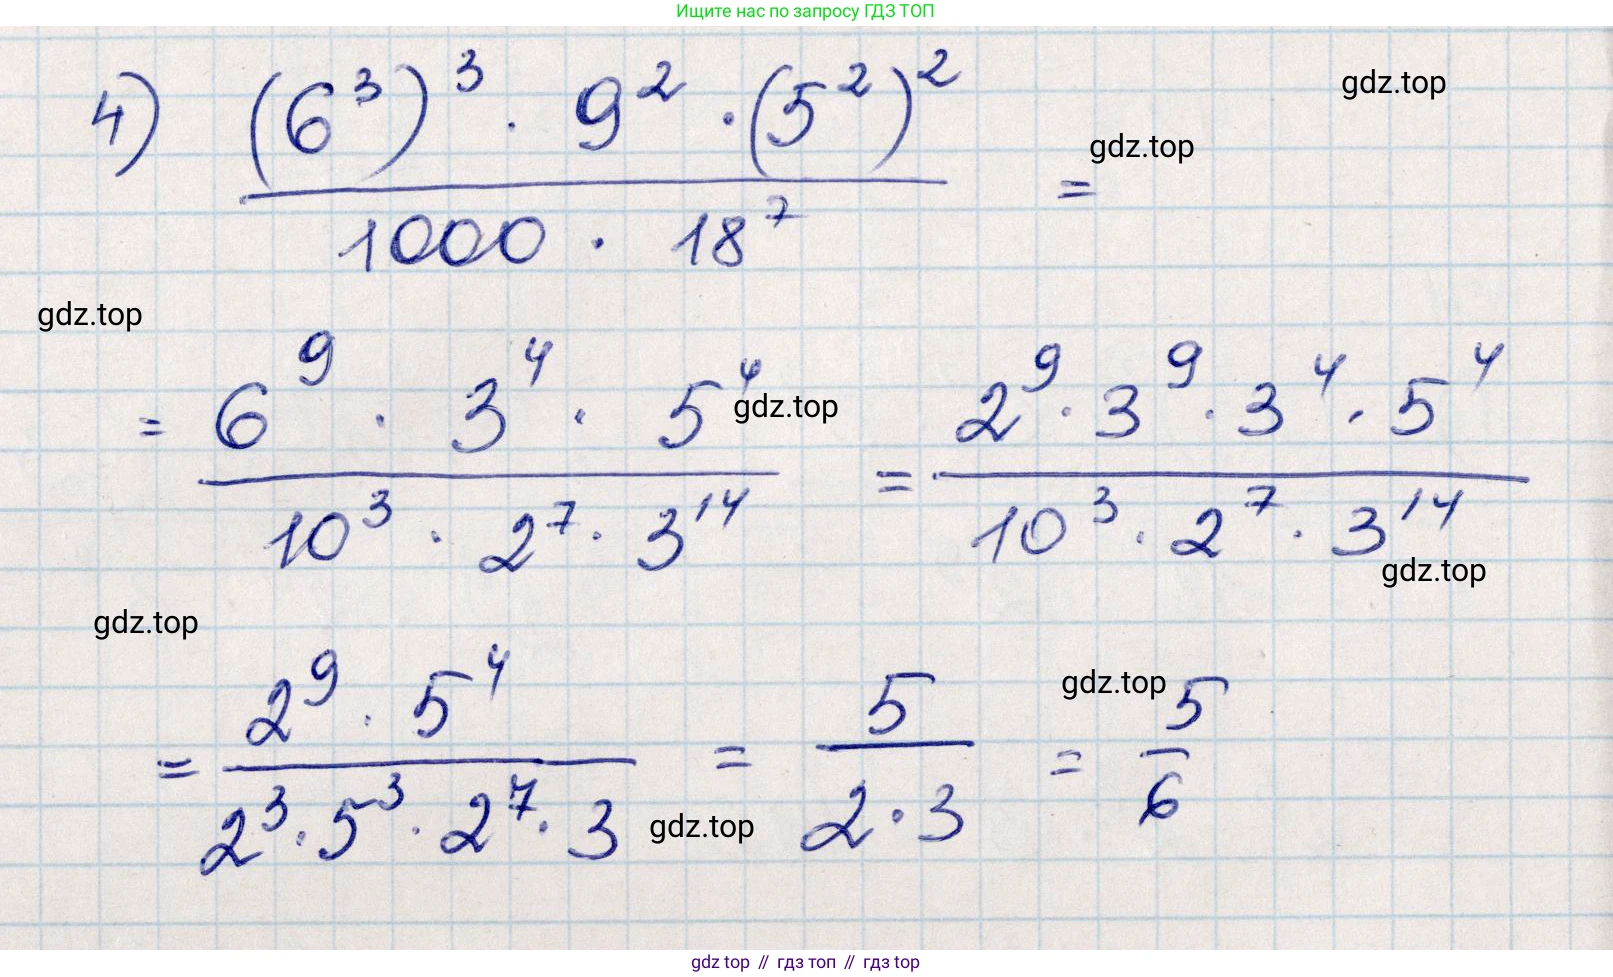 Ищите нас по запросу ГДЗ ТОП
gdz.top
4) ((6³)³ · 9² · (5²)²) / (1000 · 18⁷) =
gdz.top
gdz.top
= (6⁹ · 3⁴ · 5⁴) / (10³ · 2⁷ · 3¹⁴) = (2⁹ · 3⁹ · 3⁴ · 5⁴) / (10³ · 2⁷ · 3¹⁴)
gdz.top
gdz.top
gdz.top
= (2⁹ · 5⁴) / (2³ · 5³ · 2⁷ · 3) = 5 / (2 · 3) = 5/6
gdz.top
gdz.top
gdz top // гдз топ // gdz top